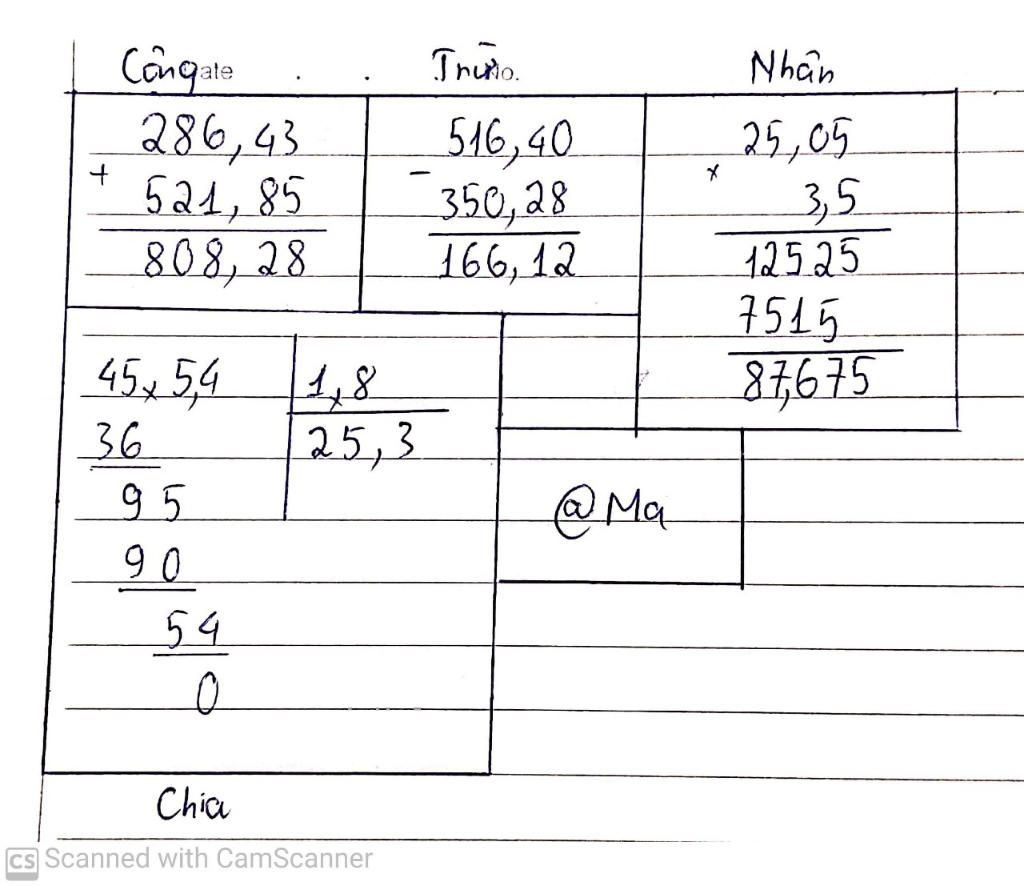 Công ate . . Trừ No. Nhân
286,43
+
521,85
808,28
516,40
-
350,28
166,12
25,05
x
3,5
12525
7515
87,675
45x5,4 1x,8
36 25,3
95
90
54
0
@Ma
Chia
CS Scanned with CamScanner